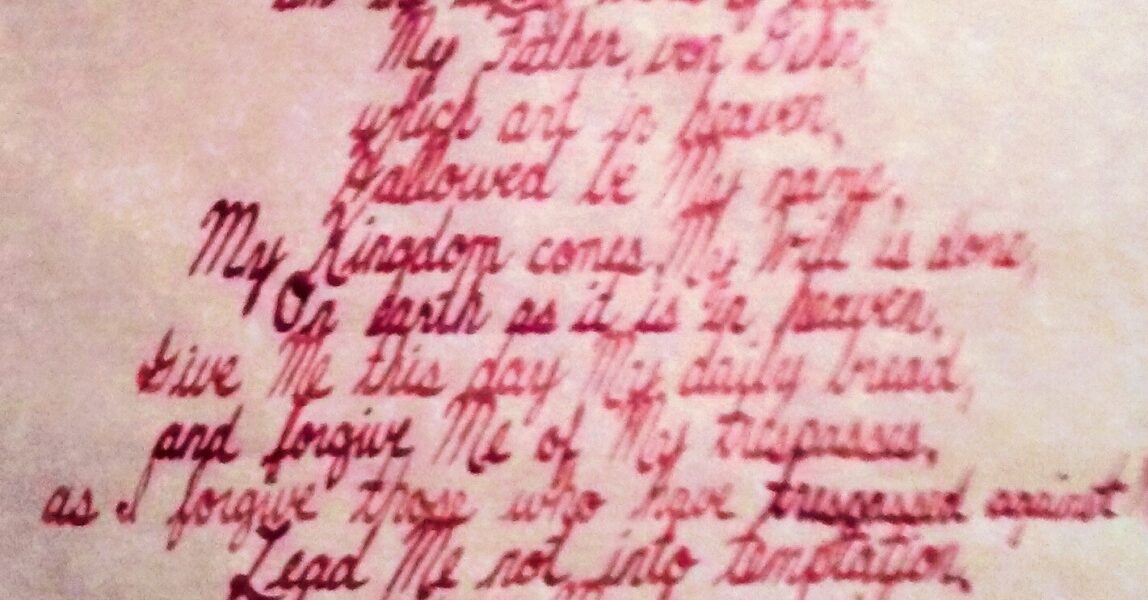 My Father, von
which art in heaven,
Hallowed be My name.
My Kingdom comes, My Will is done,
On earth as it is in heaven.
Give Me this day My daily bread,
and forgive Me of My trespasses,
as I forgive those who have trespassed against
Lead Me not into temptation,